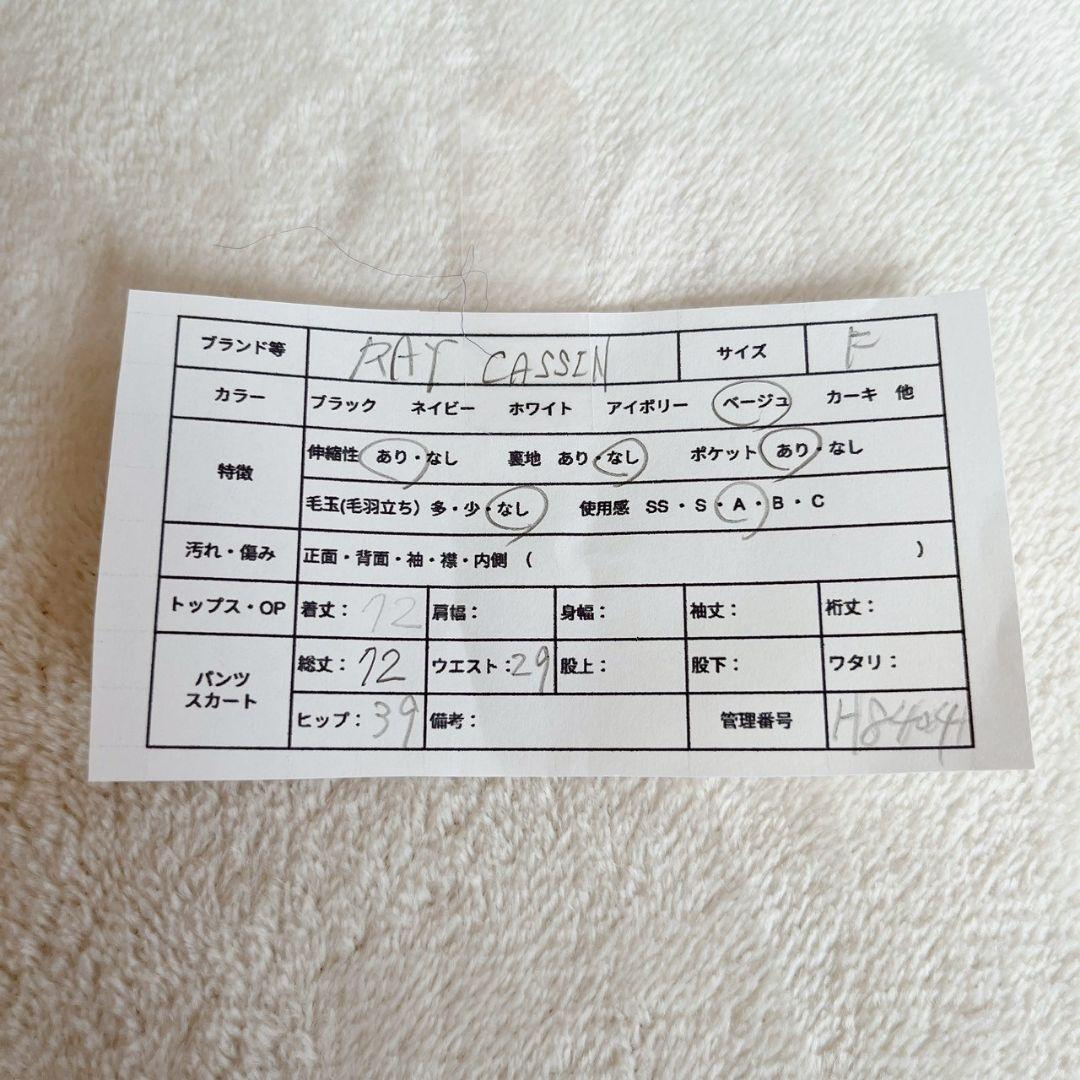 ブランド等 RAY CASSIN サイズ F
カラー ブラック ネイビー ホワイト アイボリー ベージュ カーキ 他
特徴 伸縮性 あり・なし 裏地 あり・なし ポケット あり・なし
毛玉(毛羽立ち) 多・少・なし 使用感 SS・S・A・B・C
汚れ・傷み 正面・背面・袖・襟・内側 ( )
トップス・OP 着丈: 72 肩幅: 身幅: 袖丈: 裄丈:
パンツ スカート 総丈: 72 ウエスト: 29 股上: 股下: ワタリ:
ヒップ: 39 備考: 管理番号 H8404